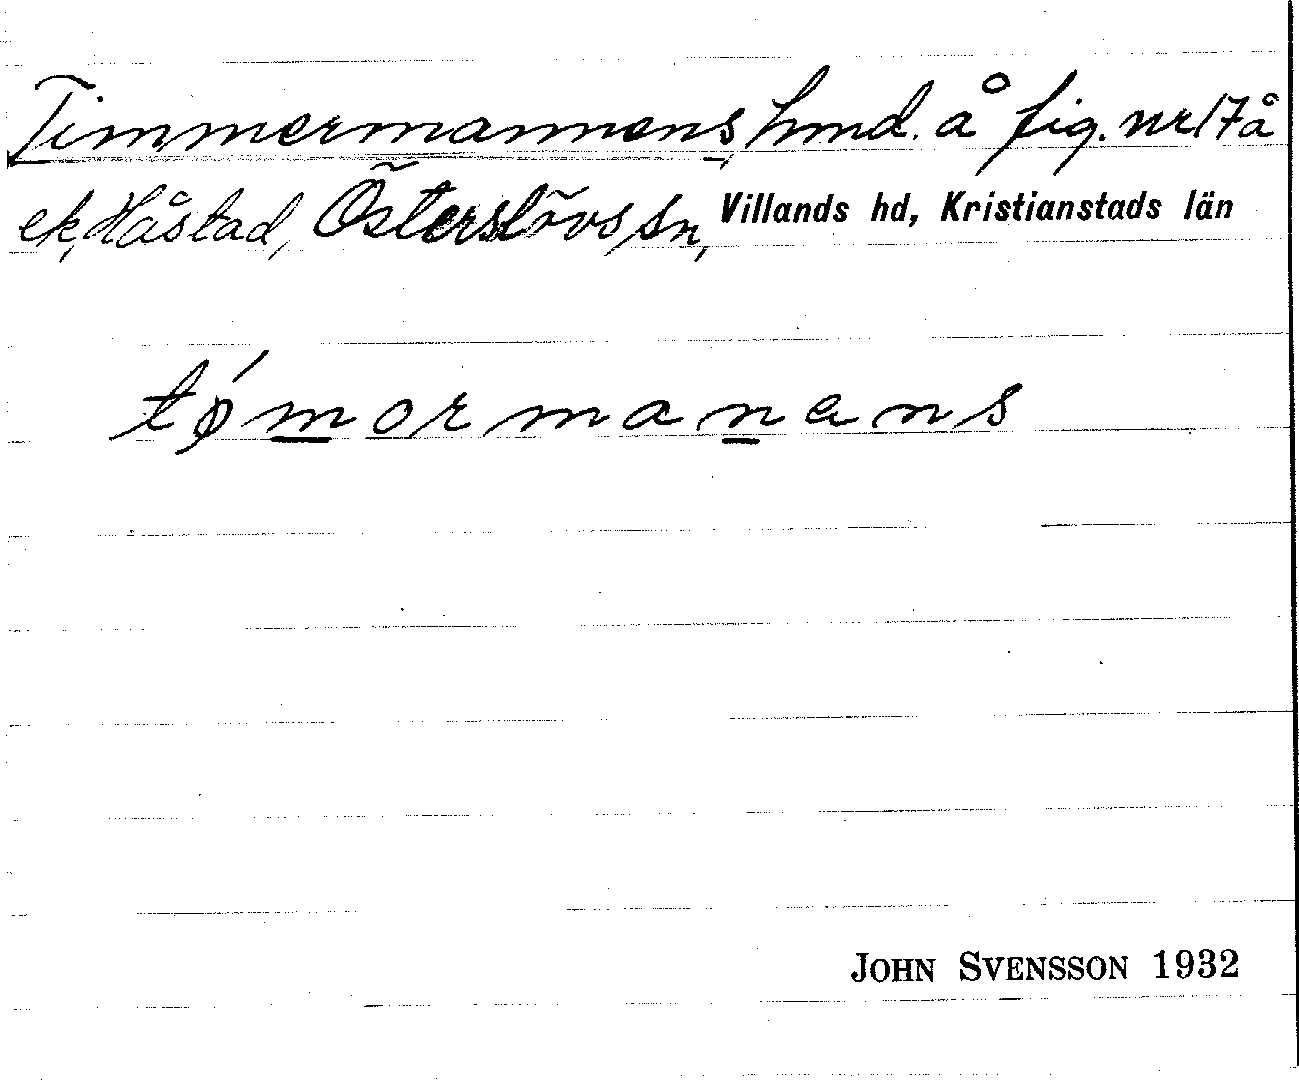 Timmermannens, hmd. å fig. nr 17 å
ek, Håstad, Österslövs sn, Villands hd, Kristianstads län
tǿmormanans
JOHN SVENSSON 1932